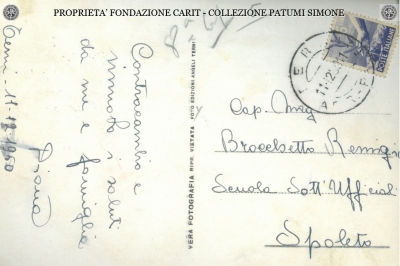 PROPRIETA' FONDAZIONE CARIT - COLLEZIONE PATUMI SIMONE
Terni 11-12-1950
Contraccambio e
saluti
da me e famiglia
VERA FOTOGRAFIA RIPR. VIETATA FOTO EDIZIONI ANGELI TERNI
POSTE ITALIANE
Cap. Mag
Brocchetto Remigio
Scuola Sott'Ufficiali
Spoleto